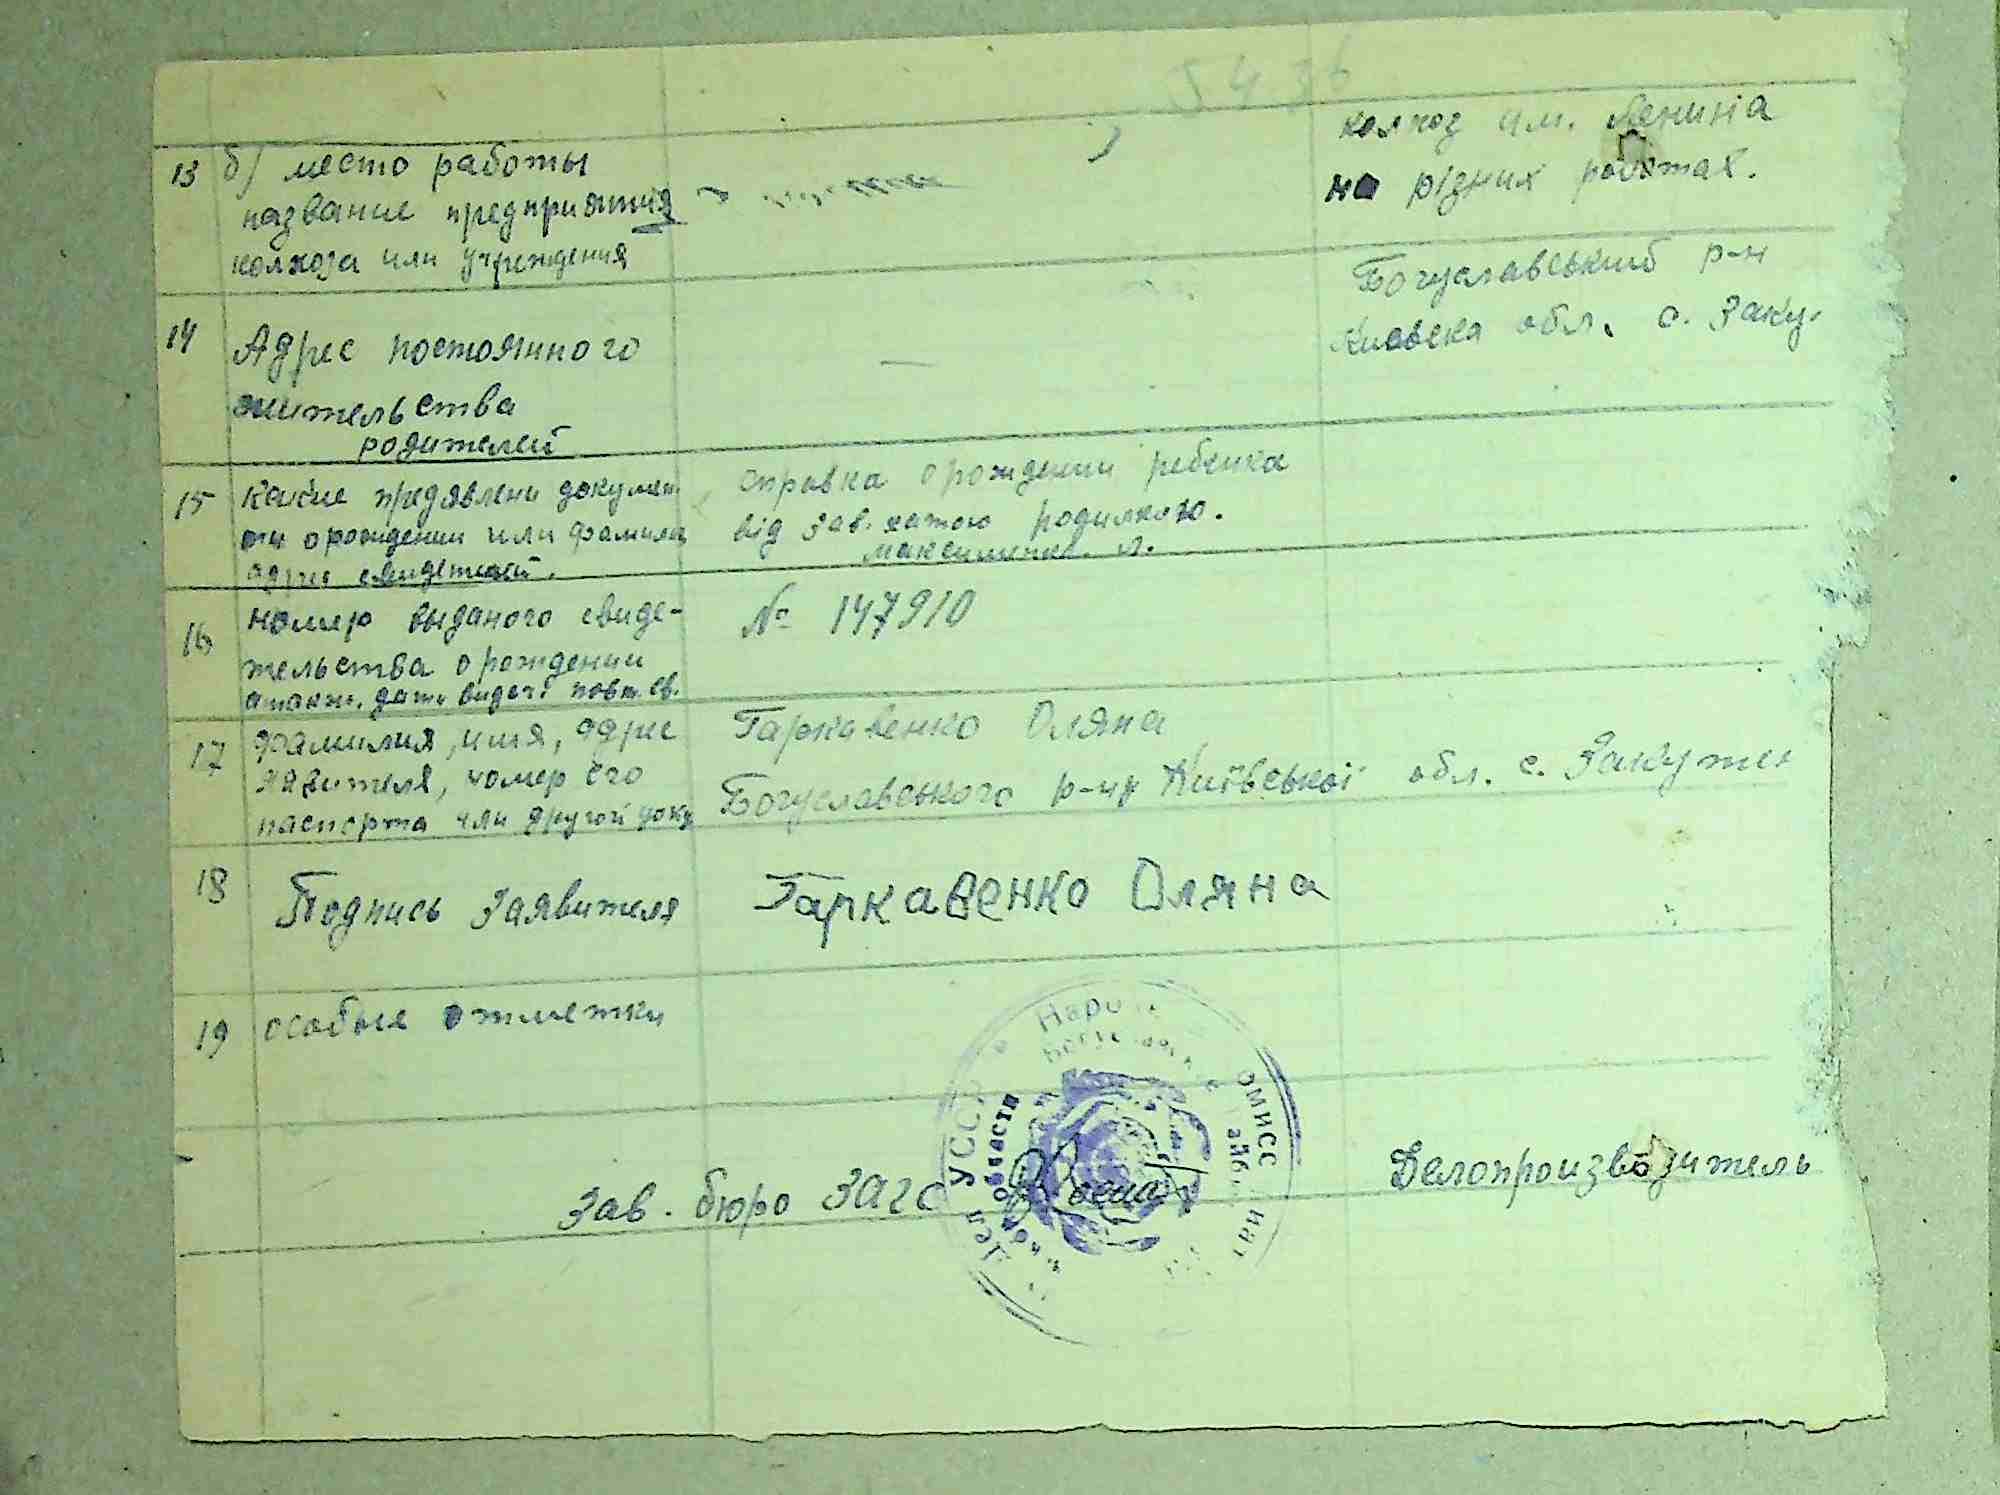 5436
13 б) место работы
название предприятия
колхоза или учреждения
колхоз им. Ленина
на різних роботах.
14 Адрес постоянного
жительства
родителей
—
Богуславський р-н
Киевска обл. с. Заку-
15 какие предявлени докумен
ти о рождении или фамилии
адрес свидетелей.
справка о рождении ребенка
від зав. хатою родилкою.
16 номер выданого свиде-
тельства о рождении
атакж. дати видачі повт. св.
№ 147910
17 фамилия, имя, адрес
заявителя, номер его
паспорта или другой доку
Гаркавенко Оляна
Богуславського р-ну Київської обл. с. Закутен
18 Подпись Заявителя
Гаркавенко Оляна
19 особые отметки
Зав. бюро ЗАГС
Делопроизводитель
УССР
области